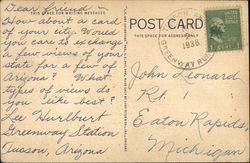 Dear friend:
THIS SPACE FOR WRITING MESSAGES
How about a card
of your city. Would
you care to exchange
a few views of your
state for a few of
Arizona? What
types of views do
you like best?
Lee Hurlburt
Greenway Station
Tucson, Arizona
POST CARD
THIS SPACE FOR ADDRESS ONLY
1938
GREENWAY RUR
John Leonard
Rt. 1
Eaton Rapids,
Michigan